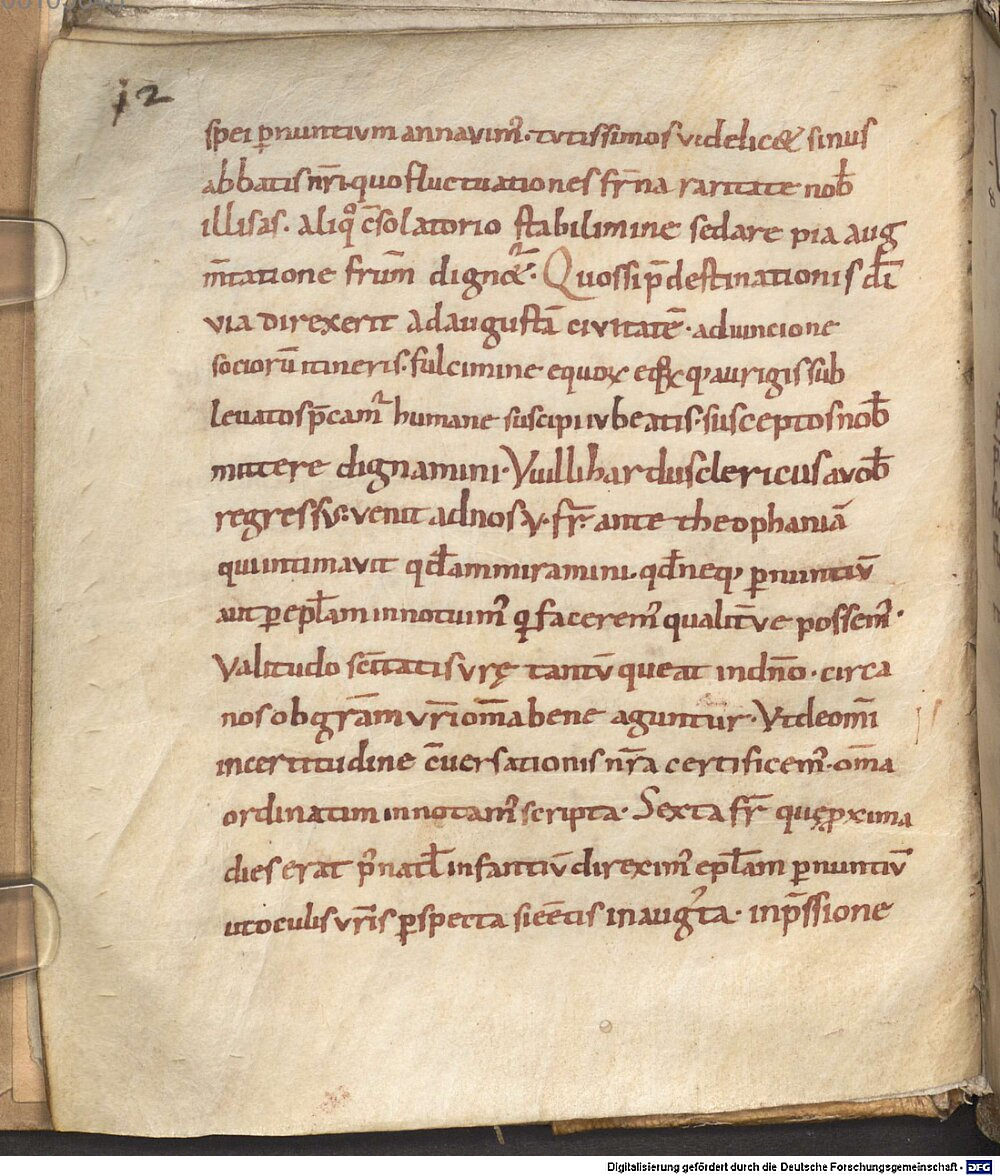 12
spei ꝑnuntium annauim᷒· tutissimos videlic& sinus
abbatis nr̄i· quo fluctuationes fr̄na raritate nob̄
illisas· aliq̊ c̄solatorio stabilimine sedare pia aug
m̄tatione frūm dign&ur· Quos si p̄destinationis dī
via direxerit ad augustā ciuitatē· adiuncione
sociorū itineris· fulcimine equoꝝ
leuatos p̄cam᷒ humane suscipi iubeatis· susceptos nob̄
mittere dignamini· Vuillihardus clericus a uob̄
regressus· venit ad nos v· fr̄· ante theophaniā
qui intimavit qd̄ ammiramini· qd̄ neq; ꝑ nuntiū
aut ꝑ epl̄am innotuim᷒ facerem᷒ qualit̄ ve possem᷒·
Valitudo sc̄itatis vrę tantū queat in dn̄o· circa
nos ob gr̄am vr̄i om̄a bene aguntur· Vt de om̄i
incertitudine c̄uersationis nr̄a certificem᷒· om̄a
ordinatim innotam᷒ scripta· Sexta fr̄ quę ꝓxima
dies erat p̄ natl̄ infantiū direxim᷒ epl̄am ꝑ nuntiū
ut oculis vr̄is ꝑspecta in aug᷒ta· inp̄ssione
Digitalisierung gefördert durch die Deutsche Forschungsgemeinschaft - DFG